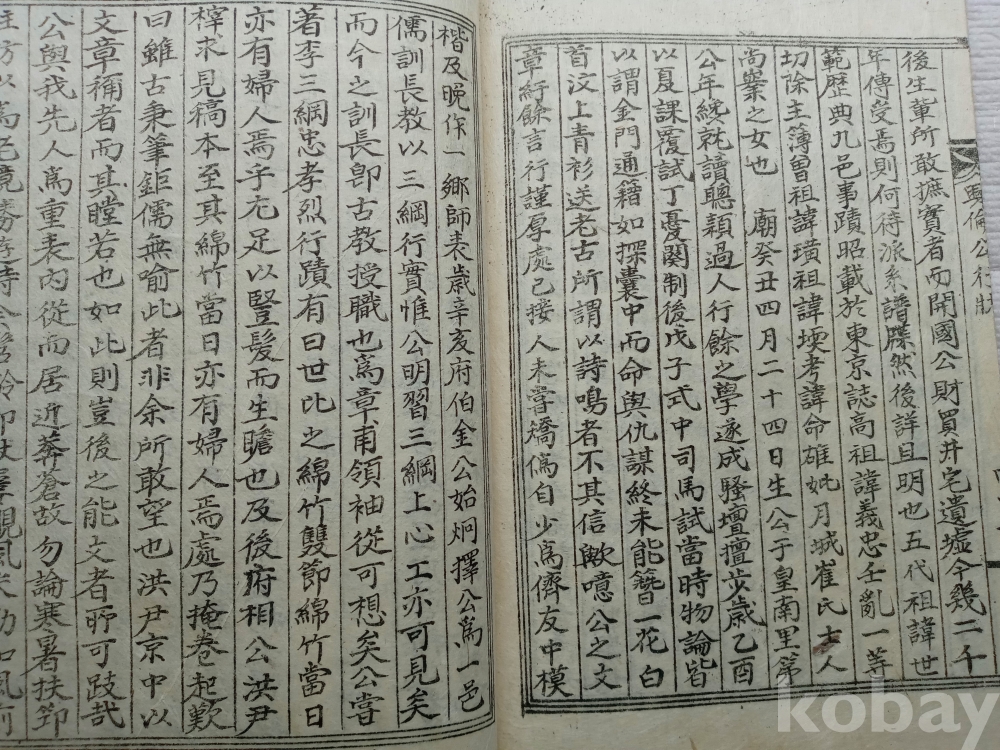 後生輩所敢摭實者而開國公財買井宅遺墟今幾二千
年傳受焉則何待派系譜牒然後詳且明也五代祖諱世
範歷典九邑事蹟昭載於東京誌高祖諱義忠壬亂一等
切除主簿曾祖諱璜祖諱堧考諱命雄妣月城崔氏士人
尚寀之女也 廟癸丑四月二十四日生公于皇南里第
公年纔就讀聰穎過人行餘之學遂成騷壇擅步歲乙酉
以夏課覆試丁憂闋制後戊子式中司馬試當時物論皆
以謂金門通籍如探囊中而命與仇謀終未能簪一花白
首汶上青衫送老古所謂以詩鳴者不其信歟噫公之文
章紆餘言行謹厚處己接人未嘗矯僞自少爲儕友中模
楷及晚作一鄉師表歲辛亥府伯金公始炯擇公爲一邑
儒訓長教以三綱行實惟公明習三綱上心工亦可見矣
而今之訓長卽古教授職也爲章甫領袖從可想矣公嘗
著李三綱忠孝烈行蹟有曰世比之綿竹雙節綿竹當日
亦有婦人焉乎尤足以豎髮而生瞻也及後府相公洪尹
梓求見稿本至其綿竹當日亦有婦人焉處乃掩卷起歎
曰雖古秉筆鉅儒無喻此者非余所敢望也洪尹京中以
文章稱者而其瞠若也如此則豈後之能文者所可跂哉
公與我先人爲重表內從而居近莽蒼故勿論寒暑扶筇
kobay